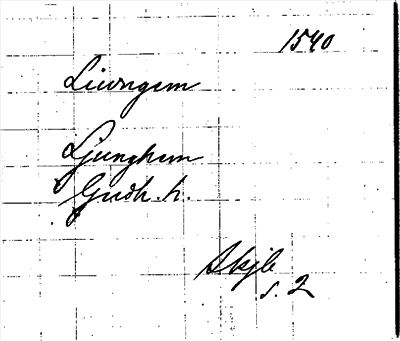 1540
Liwngem
Ljunghem
Gudh. h.
Skjb
s. 2